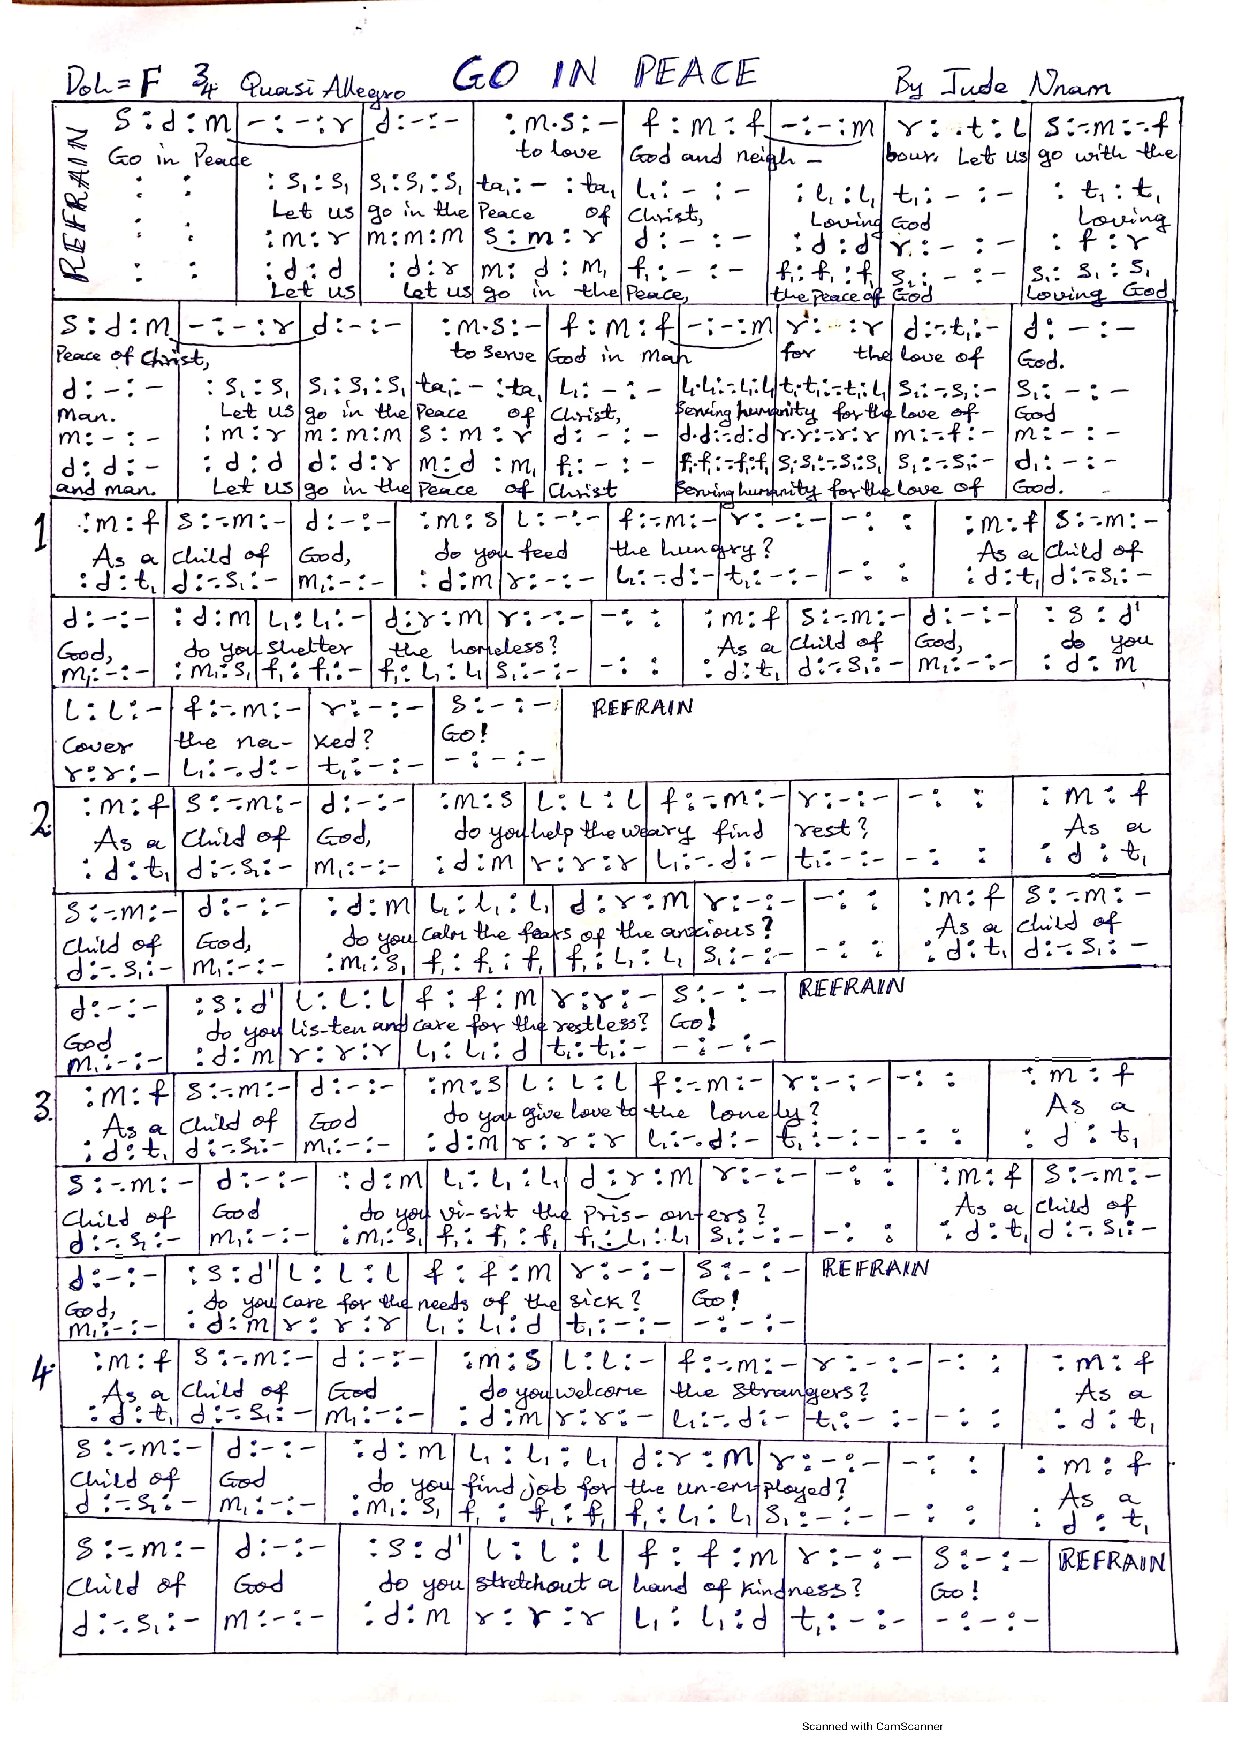 GO IN PEACE
Doh = F 3/4 Quasi Allegro By Jude Nnam
REFRAIN
s : d : m | - : - : r | d : - : - | : m . s : - | f : m : f | - : - : m | r : . t : l | s : -. m : -. f
Go in Peace to love God and neigh - bour. Let us go with the
: : | : s₁ : s₁ | s₁ : s₁ : s₁ | ta₁ : - : ta₁ | l₁ : - : - | : l₁ : l₁ | t₁ : - : - | : t₁ : t₁
Let us go in the Peace of Christ, Loving God Loving
: : | : m : r | m : m : m | s : m : r | d : - : - | : d : d | r : - : - | : f : r
: : | : d : d | : d : r | m : d : m₁ | f₁ : - : - | f₁ : f₁ : f₁ | s₁ : - : - | s₁ : s₁ : s₁
Let us let us go in the Peace, the peace of God Loving God
s : d : m | - : - : r | d : - : - | : m . s : - | f : m : f | - : - : m | r : - : r | d : -. t₁ : - | d : - : -
Peace of Christ, to serve God in man for the love of God.
d : - : - | : s₁ : s₁ | s₁ : s₁ : s₁ | ta₁ : - : ta₁ | l₁ : - : - | l₁. l₁ : -. l₁ : l₁ | t₁. t₁ : -. t₁ : l₁ | s₁ : -. s₁ : - | s₁ : - : -
Man. Let us go in the Peace of Christ, Serving humanity for the love of God
m : - : - | : m : r | m : m : m | s : m : r | d : - : - | d. d : -. d : d | r. r : -. r : r | m : -. f : - | m : - : -
d : d : - | : d : d | d : d : r | m : d : m₁ | f₁ : - : - | f₁. f₁ : -. f₁ : f₁ | s₁. s₁ : -. s₁ : s₁ | s₁ : -. s₁ : - | d₁ : - : -
and man. Let us go in the Peace of Christ Serving humanity for the love of God.
1 : m : f | s : -. m : - | d : - : - | : m : s | l : - : - | f : -. m : - | r : - : - | - : : | : m : f | s : -. m : -
As a Child of God, do you feed the hungry? As a Child of
: d : t₁ | d : -. s₁ : - | m₁ : - : - | : d : m | r : - : - | l₁ : -. d : - | t₁ : - : - | - : : | : d : t₁ | d : -. s₁ : -
d : - : - | : d : m | l₁ : l₁ : - | d : r : m | r : - : - | - : : | : m : f | s : -. m : - | d : - : - | : s : d'
God, do you shelter the homeless? As a Child of God, do you
m₁ : - : - | : m₁ : s₁ | f₁ : f₁ : - | f₁ : l₁ : l₁ | s₁ : - : - | - : : | : d : t₁ | d : -. s₁ : - | m₁ : - : - | : d : m
l : l : - | f : -. m : - | r : - : - | s : - : - | REFRAIN
Cover the na- ked? Go!
r : r : - | l₁ : -. d : - | t₁ : - : - | - : - : -
2. : m : f | s : -. m : - | d : - : - | : m : s | l : l : l | f : -. m : - | r : - : - | - : : | : m : f
As a Child of God, do you help the weary find rest? As a
: d : t₁ | d : -. s₁ : - | m₁ : - : - | : d : m | r : r : r | l₁ : -. d : - | t₁ : - : - | - : : | : d : t₁
s : -. m : - | d : - : - | : d : m | l₁ : l₁ : l₁ | d : r : m | r : - : - | - : : | : m : f | s : -. m : -
Child of God, do you calm the fears of the anxious? As a Child of
d : -. s₁ : - | m₁ : - : - | : m₁ : s₁ | f₁ : f₁ : f₁ | f₁ : l₁ : l₁ | s₁ : - : - | - : : | : d : t₁ | d : -. s₁ : -
d : - : - | : s : d' | l : l : l | f : f : m | r : r : - | s : - : - | REFRAIN
God do you lis-ten and care for the restless? Go!
m₁ : - : - | : d : m | r : r : r | l₁ : l₁ : d | t₁ : t₁ : - | - : - : -
3. : m : f | s : -. m : - | d : - : - | : m : s | l : l : l | f : -. m : - | r : - : - | - : : | : m : f
As a Child of God do you give love to the lonely? As a
: d : t₁ | d : -. s₁ : - | m₁ : - : - | : d : m | r : r : r | l₁ : -. d : - | t₁ : - : - | - : : | : d : t₁
s : -. m : - | d : - : - | : d : m | l₁ : l₁ : l₁ | d : r : m | r : - : - | - : : | : m : f | s : -. m : -
Child of God do you vi-sit the Pris- on-ers? As a Child of
d : -. s₁ : - | m₁ : - : - | : m₁ : s₁ | f₁ : f₁ : f₁ | f₁ : l₁ : l₁ | s₁ : - : - | - : : | : d : t₁ | d : -. s₁ : -
d : - : - | : s : d' | l : l : l | f : f : m | r : - : - | s : - : - | REFRAIN
God, do you care for the needs of the sick? Go!
m₁ : - : - | : d : m | r : r : r | l₁ : l₁ : d | t₁ : - : - | - : - : -
4. : m : f | s : -. m : - | d : - : - | : m : s | l : l : - | f : -. m : - | r : - : - | - : : | : m : f
As a Child of God do you welcome the strangers? As a
: d : t₁ | d : -. s₁ : - | m₁ : - : - | : d : m | r : r : - | l₁ : -. d : - | t₁ : - : - | - : : | : d : t₁
s : -. m : - | d : - : - | : d : m | l₁ : l₁ : l₁ | d : r : m | r : - : - | - : : | : m : f
Child of God do you find job for the un-employed? As a
d : -. s₁ : - | m₁ : - : - | : m₁ : s₁ | f₁ : f₁ : f₁ | f₁ : l₁ : l₁ | s₁ : - : - | - : : | : d : t₁
s : -. m : - | d : - : - | : s : d' | l : l : l | f : f : m | r : - : - | s : - : - | REFRAIN
Child of God do you stretch out a hand of kindness? Go!
d : -. s₁ : - | m : - : - | : d : m | r : r : r | l₁ : l₁ : d | t₁ : - : - | - : - : -
Scanned with CamScanner